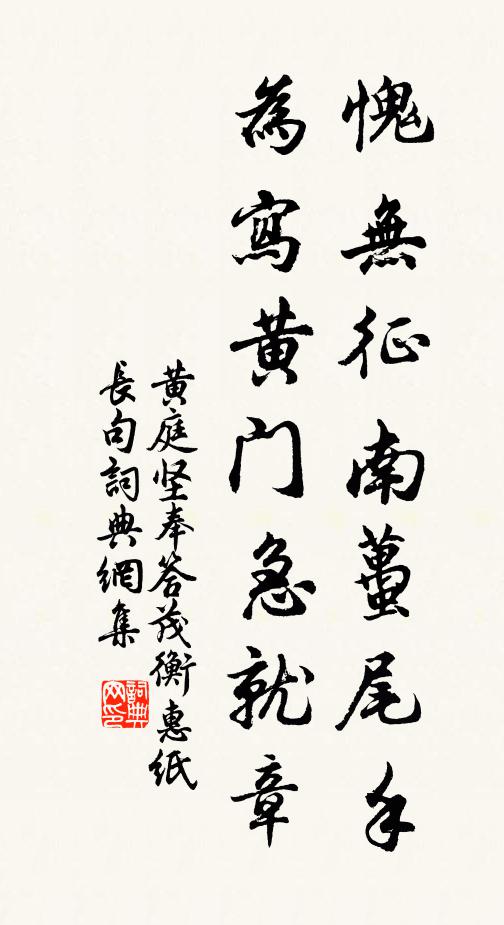 愧無征南蠆尾手
為寫黃門急就章
黃庭坚奉答茂衡惠紙
長句詞典網集
詞典网印